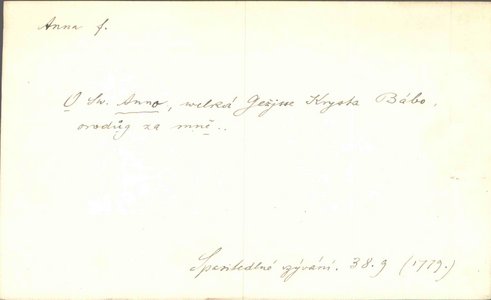 Anna f.
O Sw. Anno, welká Gežjsse Krysta Bábo,
oroduğ za mně..
Sprostedlné wzýwání. 38.9 (1779.)